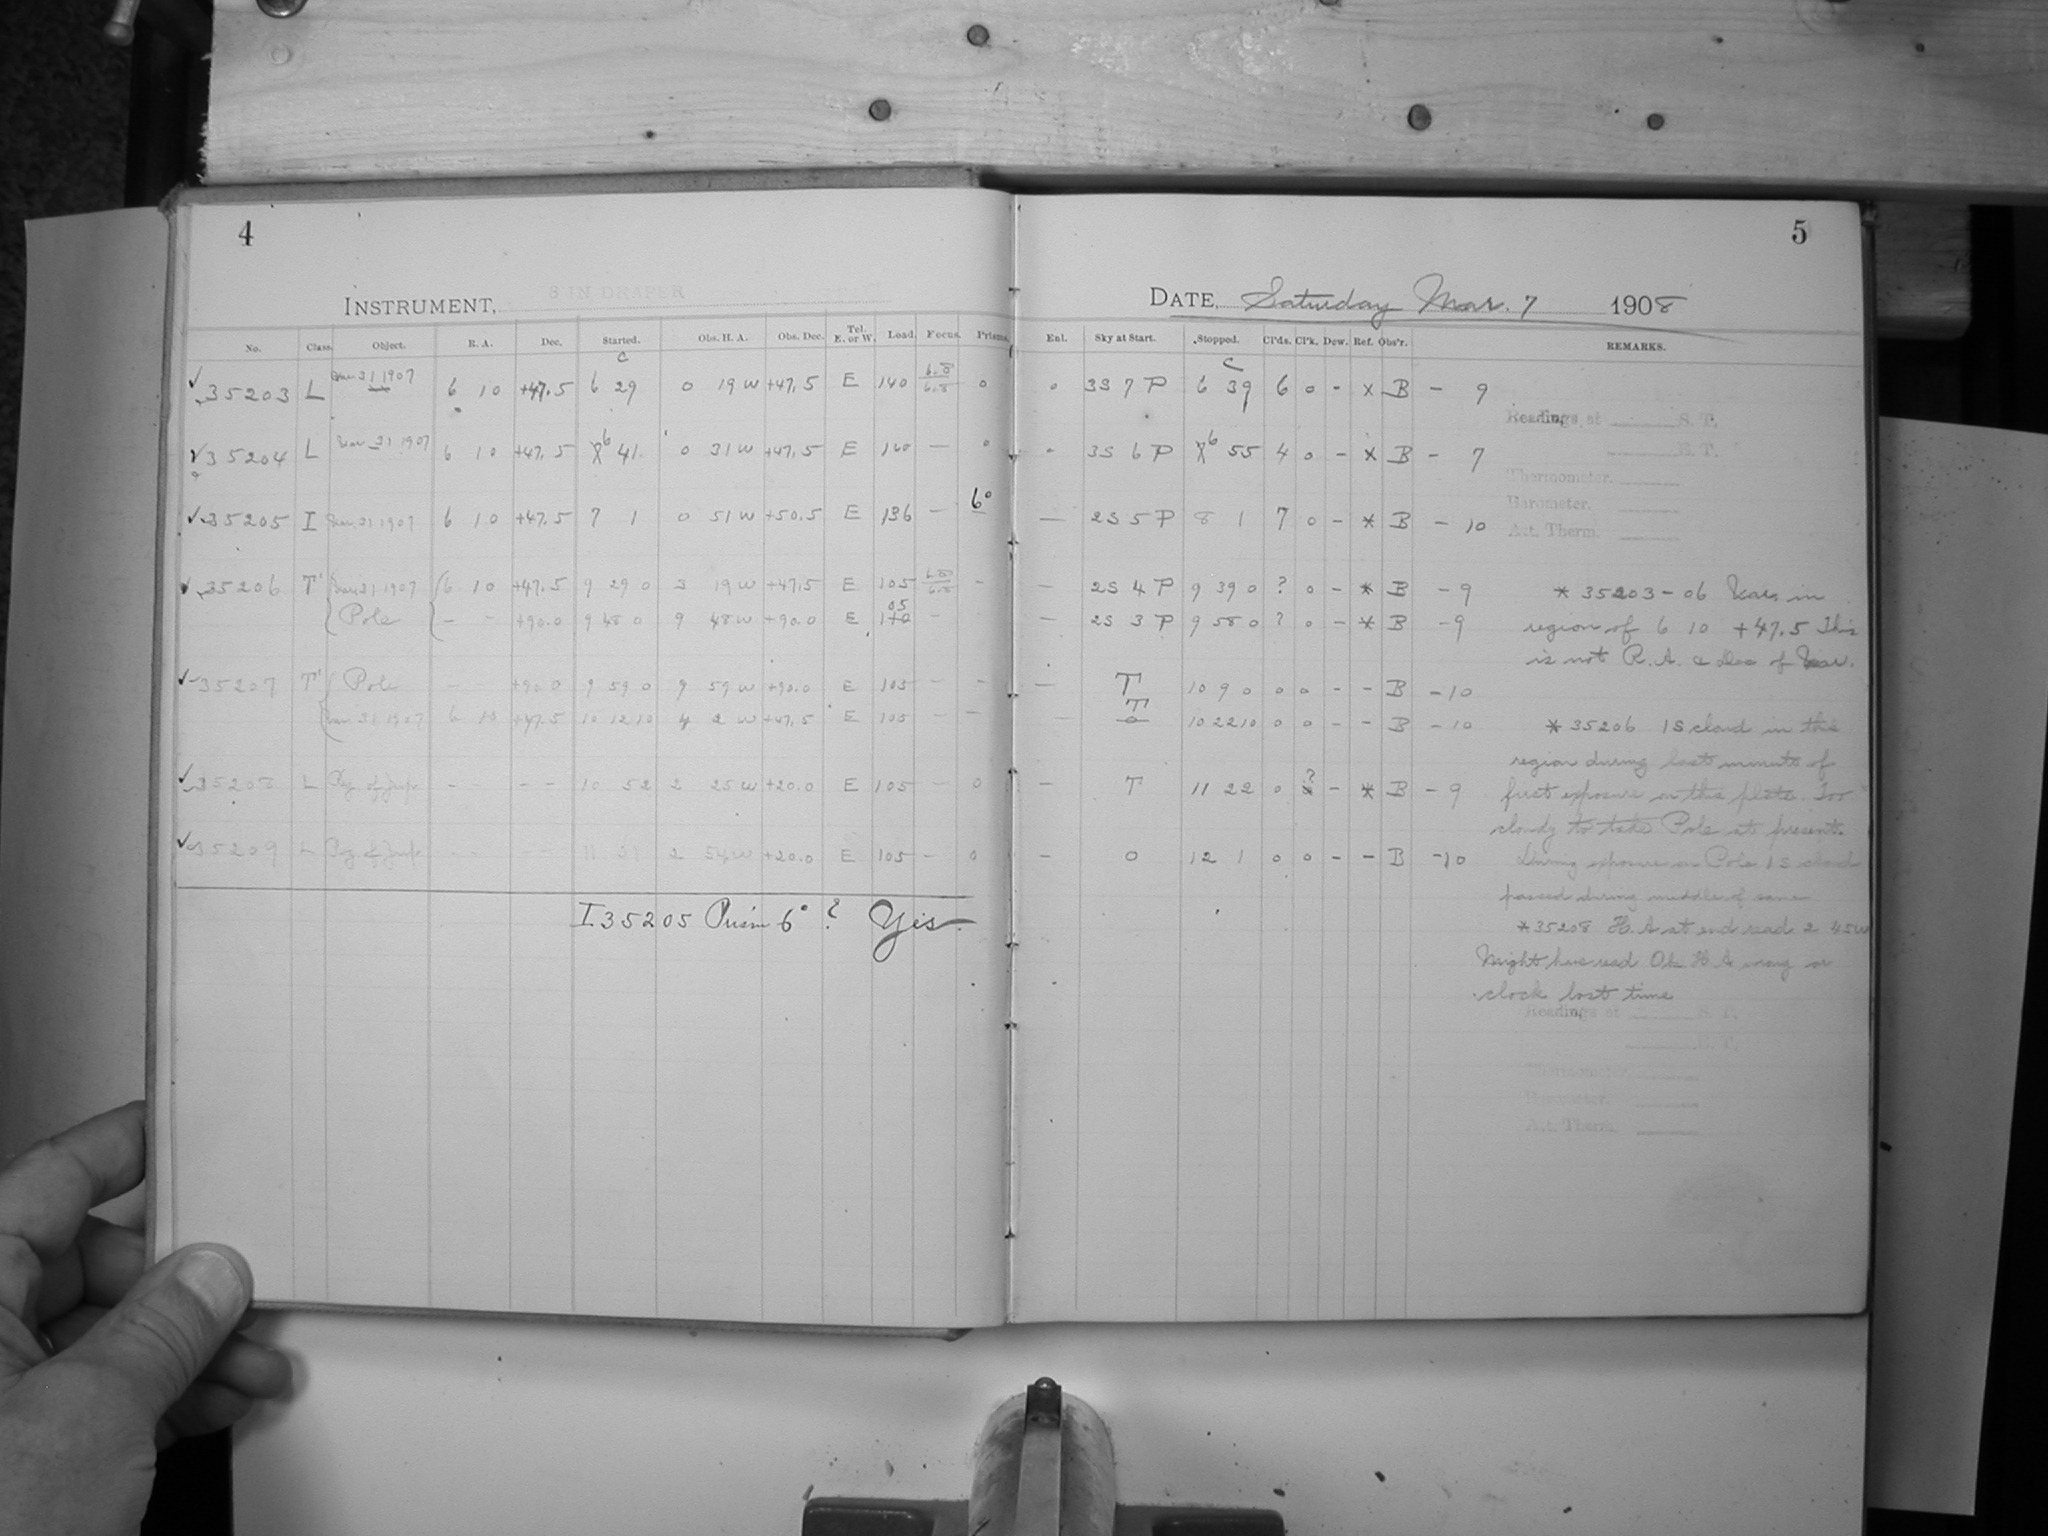 4
INSTRUMENT, 8 IN DRAPER
No. Class. Object. R. A. Dec. Started. Obs. H. A. Obs. Dec. Tel. E. or W. Load. Focus. Prisms.
C
35203 L 31 1907 6 10 +47.5 6 29 0 19 W +47.5 E 140 6.8 6.8 0
35204 L 31 1907 6 10 +47.5 6 41 0 31 W +47.5 E 140 — 0
35205 I 31 1907 6 10 +47.5 7 1 0 51 W +50.5 E 136 — 6°
35206 T' 31 1907 6 10 +47.5 9 29 0 3 19 W +47.5 E 105 6.8 6.8 –
Pole – – +90.0 9 48 0 9 48 W +90.0 E 05 –
35207 T' Pole – – +90.0 9 59 0 9 59 W +90.0 E 105 – –
31 1907 6 10 +47.5 10 12 10 4 2 W +47.5 E 105 – –
35208 L Reg. of Jup – – – – 10 52 2 25 W +20.0 E 105 – 0
35209 L Reg. of Jup – – – – 11 31 2 54 W +20.0 E 105 – 0
I 35205 Prism 6° ? Yes.
5
DATE, Saturday Mar. 7 1908
Enl. Sky at Start. Stopped. Cl'ds. Cl'k. Dew. Ref. Obs'r. REMARKS.
C
0 3S 7 P 6 39 6 0 - x B – 9
Readings at S. T.
0 3S 6 P 6 55 4 0 – * B – 7
E. T.
Thermometer.
Barometer.
— 2S 5 P 8 1 7 0 – * B – 10
Att. Therm.
— 2S 4 P 9 39 0 ? 0 – * B – 9 * 35203 – 06 in
— 2S 3 P 9 58 0 ? 0 – * B – 9 region of 6 10 +47.5 This
is not R. A. & Dec of
— T 10 9 0 0 0 – – B – 10
T
— 10 22 10 0 0 – – B – 10 * 35206 1S cloud in this
region during last minute of
— T 11 22 0 ? – * B – 9 first exposure on this plate. Too
cloudy to take Pole at present.
— 0 12 1 0 0 – – B – 10 During exposure on Pole 1S cloud
passed during middle of same
* 35208 H. A at end read 2 45W
Might have read Ob. H. A wrong or
clock lost time
Readings at S. T.
E. T.
Thermometer.
Barometer.
Att. Therm.